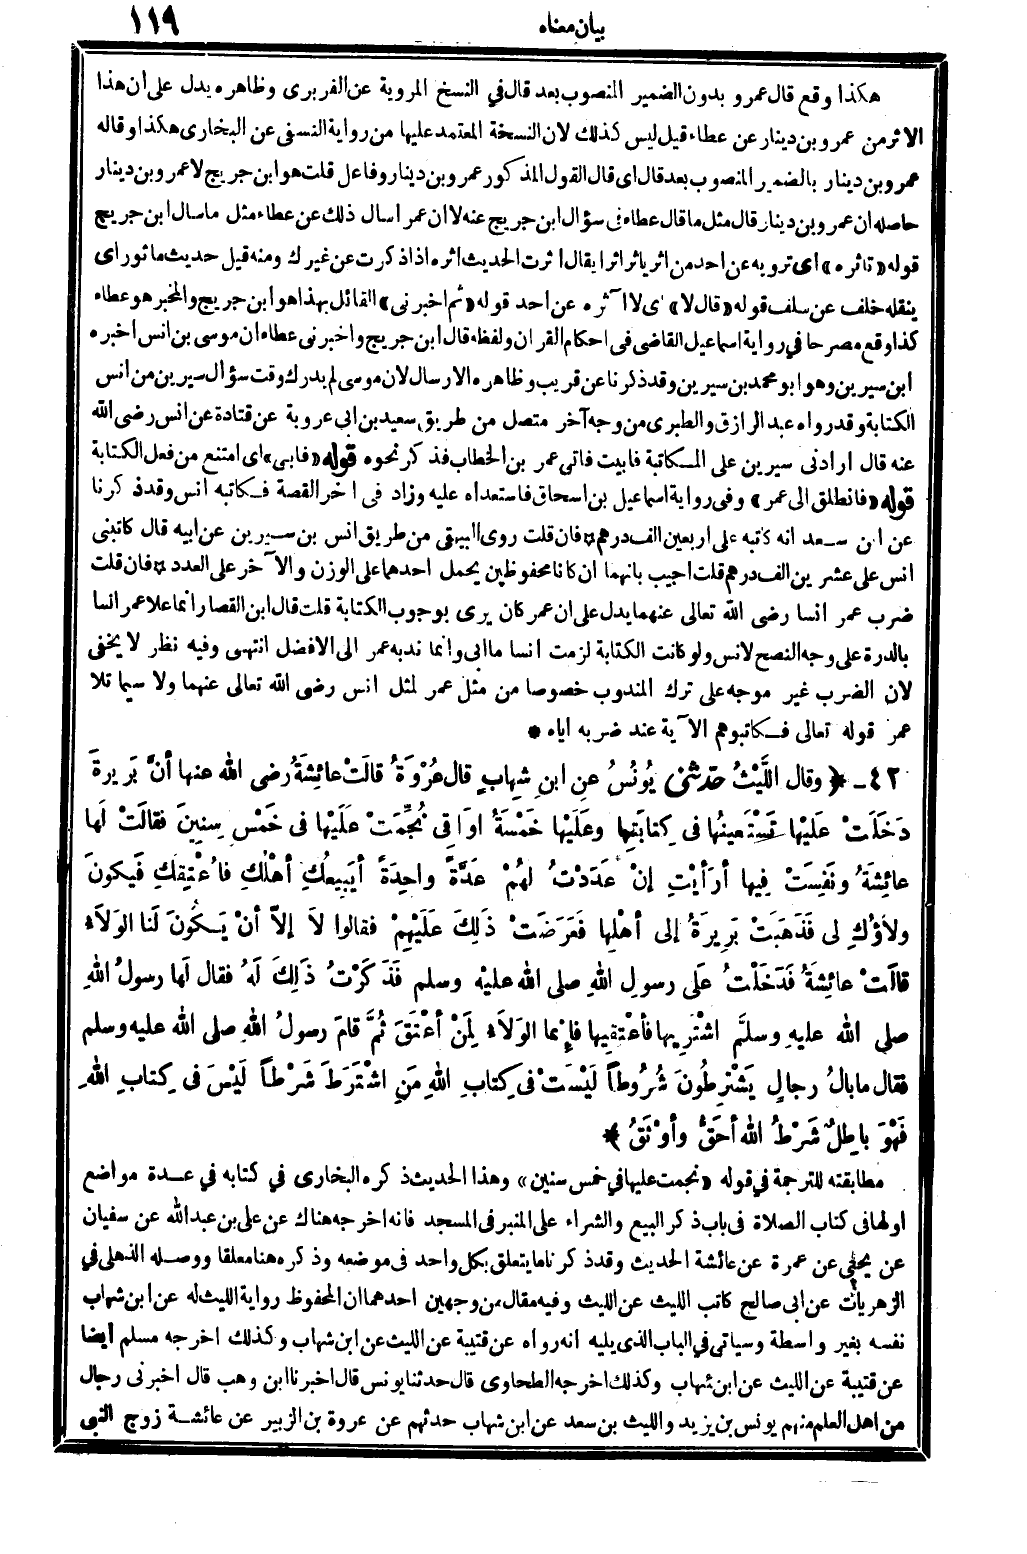 بيان معناه
١١٩
هكذا وقع قال عمرو بدون الضمير المنصوب بعد قال في النسخ المروية عن الفربرى وظاهره يدل على أن هذا
الاثر من عمرو بن دينار عن عطاء قيل ليس كذلك لان النسخة المعتمد عليها من رواية النسفى عن البخارى هكذا وقاله
عمرو بن دينار بالضمير المنصوب بعد قال اى قال القول المذكور عمرو بن دينار وفاعل قلت هو ابن جريج لا عمرو بن دينار
حاصله ان عمرو بن دينار قال مثل ما قال عطاء فى سؤال ابن جريج عنه لا ان عمرا سال ذلك عن عطاء مثل ما سال ابن جريج
قوله «تاثره» اى ترويه عن احد من اثر ياثر اثرا يقال اثرت الحديث اثره اذا ذكرت عن غيرك ومنه قيل حديث ماثور اى
ينقله خلف عن سلف قوله «قال لا» اى لا آثره عن احد قوله «ثم اخبرنى» القائل بهذا هو ابن جريج والمخبر هو عطاء
كذا وقع مصرحا في رواية اسماعيل القاضى فى احكام القران ولفظه قال ابن جريج واخبرنى عطاء ان موسى بن انس اخبره
ابن سيرين وهو ابو محمد بن سيرين وقد ذكرنا عن قريب وظاهره الارسال لان موسى لم يدرك وقت سؤال سيرين من انس
الكتابة وقد رواه عبد الرازق والطبرى من وجه آخر متصل من طريق سعيد بن ابى عروبة عن قتادة عن انس رضى الله
عنه قال ارادنى سيرين على المكاتبة فابيت فاتى عمر بن الخطاب فذكر نحوه قوله «فابى» اى امتنع من فعل الكتابة
قوله «فانطلق الى عمر» وفى رواية اسماعيل بن اسحاق فاستعداه عليه وزاد فى اخر القصة فكاتبه انس وقد ذكرنا
عن ابن سعد انه كاتبه على اربعين الف درهم * فان قلت روى البيهقى من طريق انس بن سيرين عن ابيه قال كاتبنى
انس على عشرين الف درهم قلت اجيب بانهما ان كانا محفوظين يحمل احدهما على الوزن والآخر على العدد * فان قلت
ضرب عمر انسا رضى الله تعالى عنهما يدل على ان عمر كان يرى بوجوب الكتابة قلت قال ابن القصار انما علا عمر انسا
بالدرة على وجه النصح لانس ولو كانت الكتابة لزمت انسا ما ابى وانما ندبه عمر الى الافضل انتهى وفيه نظر لا يخفى
لان الضرب غير موجه على ترك المندوب خصوصا من مثل عمر لمثل انس رضى الله تعالى عنهما ولا سيما تلا
عمر قوله تعالى فكاتبوهم الآية عند ضربه اياه *
٤٢ ـ ﴿ وقال اللَّيْثُ حدثنى يُونُسُ عنِ ابنِ شِهابٍ قال عُرْوَةُ قالَتْ عائِشَةُ رضى الله عنها أنَّ بَرِيرةَ
دَخَلَتْ عَلَيْها تَسْتَعينُها فى كِتابَتِها وعَلَيْها خَمْسَةُ اواقِى نُجِّمَتْ عَلَيْها فى خَمْسِ سِنِينَ فقالَتْ لَها
عائِشَةُ ونَفِسَتْ فِيها أرَأَيْتِ إنْ عَدَدْتُ لهُمْ عَدَّةً واحِدَةً أيَبِيعُكِ أهْلُكِ فاُعْتِقِكِ فَيكونَ
ولاَؤُكِ لى فَذَهَبَتْ بَرِيرَةُ إلى أهْلِها فَعَرَضَتْ ذلِكَ عَلَيْهِمْ فقالوا لاَ إلاَّ أنْ يَكُونَ لَنا الوَلاَءُ
قالَتْ عائِشَةُ فَدَخَلْتُ عَلَى رسولِ اللهِ صلى الله عليْه وسلم فَذَكَرْتُ ذَلِكَ لَهُ فقال لَها رسولُ اللهِ
صلى الله عليهِ وسلَّم اشْتَرِيها فأعْتِقِيها فإنَّما الوَلاَءُ لِمَنْ أعْتَقَ ثُمَّ قامَ رسولُ اللهِ صلى الله عليه وسلم
فقال ما بالُ رِجالٍ يَشْتَرِطُونَ شُرُوطاً لَيْسَتْ فى كِتابِ اللهِ مَنِ اشْتَرَطَ شَرْطاً لَيْسَ فى كِتابِ اللهِ
فَهْوَ باطِلٌ شَرْطُ اللهِ أحَقُّ وأوْثَقُ ﴾
مطابقته للترجمة في قوله «نجمت عليها في خمس سنين» وهذا الحديث ذكره البخارى في كتابه في عدة مواضع
اولها فى كتاب الصلاة فى باب ذكر البيع والشراء على المنبر فى المسجد فانه اخرجه هناك عن على بن عبد الله عن سفيان
عن يحيى عن عمرة عن عائشة الحديث وقد ذكرنا ما يتعلق بكل واحد فى موضعه وذكره هنا معلقا ووصله الذهلى في
الزهريات عن ابى صالح كاتب الليث عن الليث وفيه مقال من وجهين احدهما ان المحفوظ رواية الليث له عن ابن شهاب
نفسه بغير واسطة وسياتى في الباب الذى يليه انه رواه عن قتيبة عن الليث عن ابن شهاب وكذلك اخرجه مسلم أيضا
عن قتيبة عن الليث عن ابن شهاب وكذلك اخرجه الطحاوى قال حدثنا يونس قال اخبرنا ابن وهب قال اخبرنى رجال
من اهل العلم منهم يونس بن يزيد والليث بن سعد عن ابن شهاب حدثهم عن عروة بن الزبير عن عائشة زوج النبى